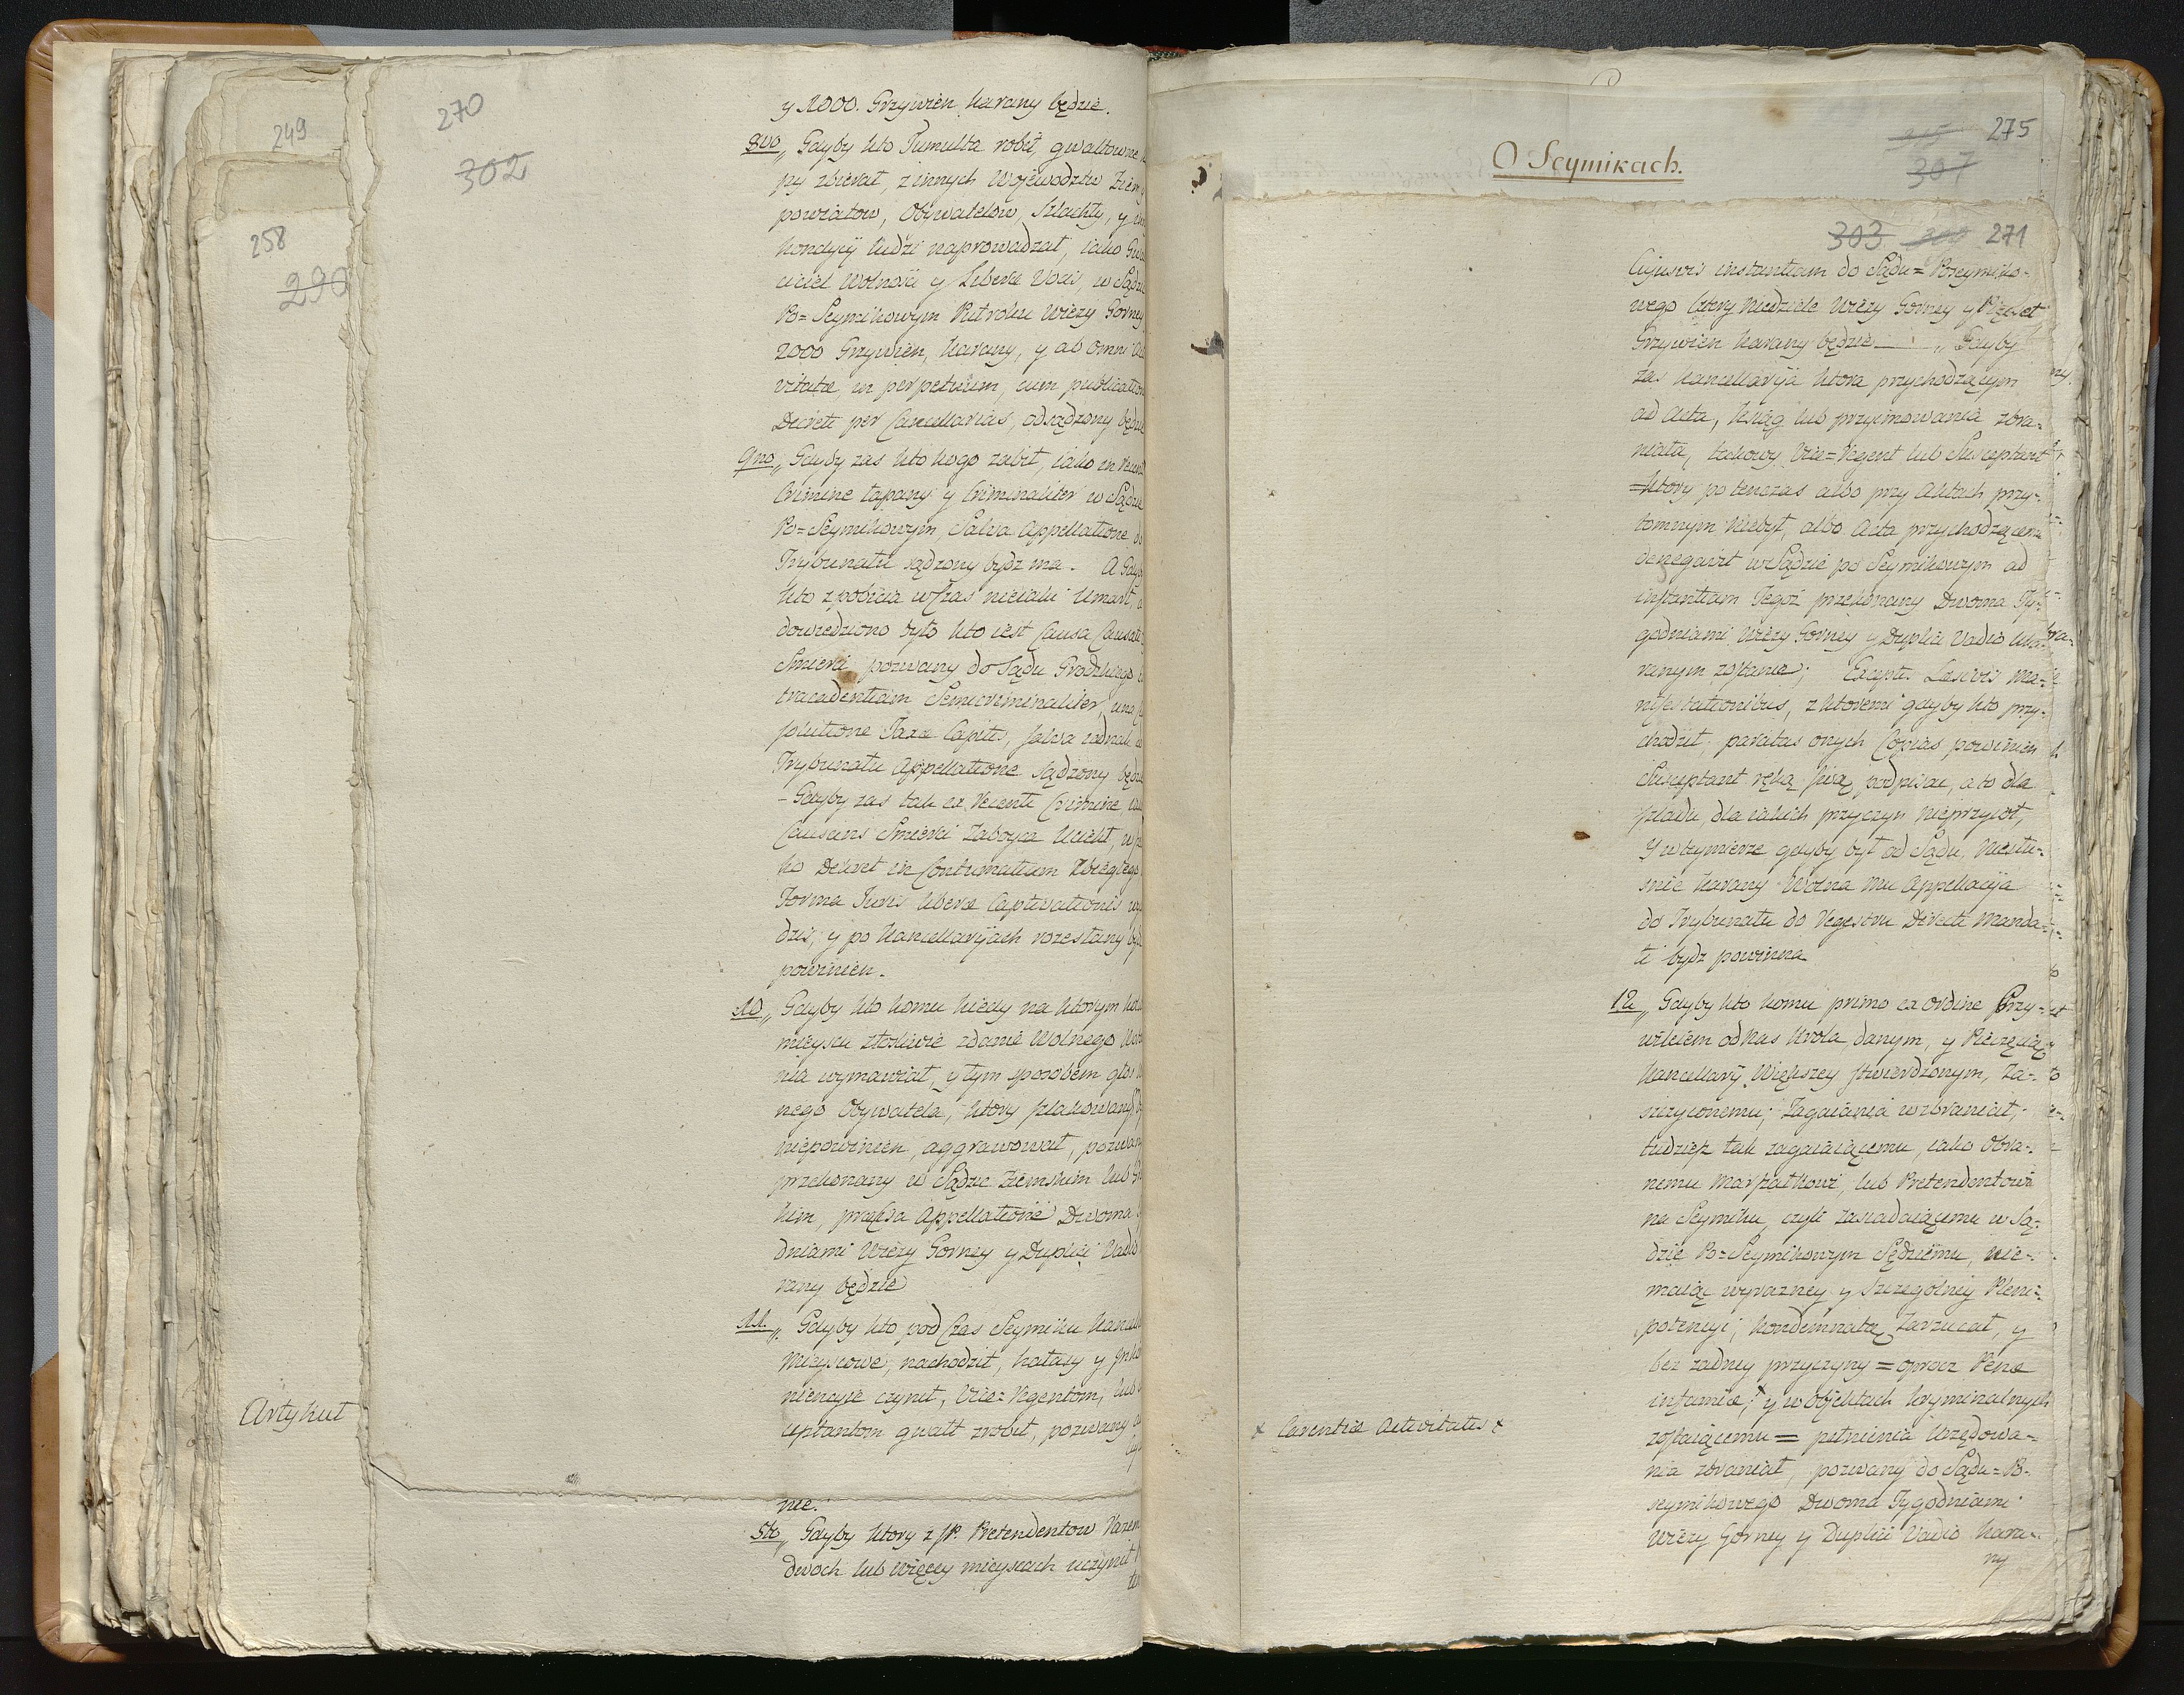 249
258
290
Artykuł
270
302
y 1000. Grzywien karany będzie.
8vo„ Gdyby kto Tumulta robił, gwałtowne
py zbierał, z innych Woiewodztw Ziem
powiatow, Obywatelow, Szlachty, y
kondycyi ludzi naprowadzał, iako
ciciel Wolności y Liberæ Vocis, w Sądzie
Po=Seymikowym Puł roku Wieży Gorney
2000 Grzywien, karany, y ab omni
vitate, in perpetuum, cum publicatione
Decreti per Cancellarias, odsądzony będzie
9no„ Gdyby zas kto kogo zabił, iako in recenti
Crimine łapany y Criminaliter w Sądzie
Po=Seymikowym Salva Appellatione do
Trybunału sądzony bydz ma. A Gdyby
kto z pobicia w Czas nieiaki Umarł,
dowiedziono było kto iest Causa Causans
Smierci pozwany do Sądu Grodzkiego
tracadentiam Semicriminaliter, una
solutione Taxæ Capitis, salva iednak
Trybunału Appellatione sądzony będzie
- Gdyby zas tak ex recenti Crimine,
Causans Smierci Zaboyca Uciekł,
ko Dekret in Contumatiam Zbiegłego
Forma Juris liberæ Captivationis
dzić, y po Kancellaryach rozesłany bydz
powinien.
10„ Gdyby kto komu kiedy na ktorym
mieyscu złosliwie zdanie Wolnego
nia wymawiał, y tym sposobem głos
nego Obywatela, ktory szlakowany
niepowinien, aggrawował, pozwany
przekonany w Sądzie Ziemskim lub
kim, præcisa Appellatione Dwoma
dniami Wieży Gorney y Duplici Vadio
rany będzie
11.„ Gdyby kto pod Czas Seymiku
Mieyscowe, nachodził, hałasy y
niencye czynił, Vice=Regentom, lub
ceptantom gwałt zrobił, pozwany
nie.
5to„ Gdyby ktory z JP. Pretendentow
dwoch lub więcey mieyscach uczynił
O Seymikach.
275
307
303 271
Cujusvis instantiam do Sądu=Poseymiko-
wego Cztery Niedziele Wieży Gorney y Pięćset
Grzywien karany będzie „ Gdyby
zas Kancellarya ktora przychodzącym
ad Acta, Ksiąg lub przyimowania zbra-
niała, takowy Vice=Regent lub Susceptant
=ktory potenczas albo przy Aktach przy-
tomnym niebył, albo Acta przychodzącemu
denegavit w Sądzie po Seymikowym ad
instantiam Tegoż przekonany Dwoma Ty-
godniami Wieży Gorney y Duplici Vadio uka-
ranym zostanie; Except. Lascivis Ma-
nifestationibus, z ktoremi gdyby kto przy-
chodził, paratas onych Copias, powinien
Susceptant ręką swą podpisać, a to dla
szladu, dla iakich przyczyn nieprzyioł,
Y w teymierze gdyby był od Sądu, Niesłu-
sznie karany Wolna mu Appellacya
do Trybunału do Regestru Directi Manda-
ti bydz powinna
12„ Gdyby kto komu primo ex ordine Przy-
wileiem od Nas Krola, danym, y Pieczęcią
Kancellaryi Większey stwierdzonym, Za-
szczyconemu; Zagaiania wzbraniał,
tudziesz tak zagaiaiącemu, iako Obra-
nemu Marszałkowi, lub Pretendentowi
na Seymiku, czyli zasiadaiącemu w Są-
dzie Po=Seymikowym Sędziemu, nie-
maiąc wyrazney y szczegolney Pleni-
potencyi; kondemnatę Zarzucał, y
bez zadney przyczyny = oprocz Penæ
infamiæ; x y w objektach kryminalnych
zostaiącemu = pełnienia Urzędowa-
nia zbraniał, pozwany do Sądu=Po-
seymikowego Dwoma Tygodniami
Wieży Gorney y Duplici Vadio kara-
ny
x Carentiæ Activitatis x